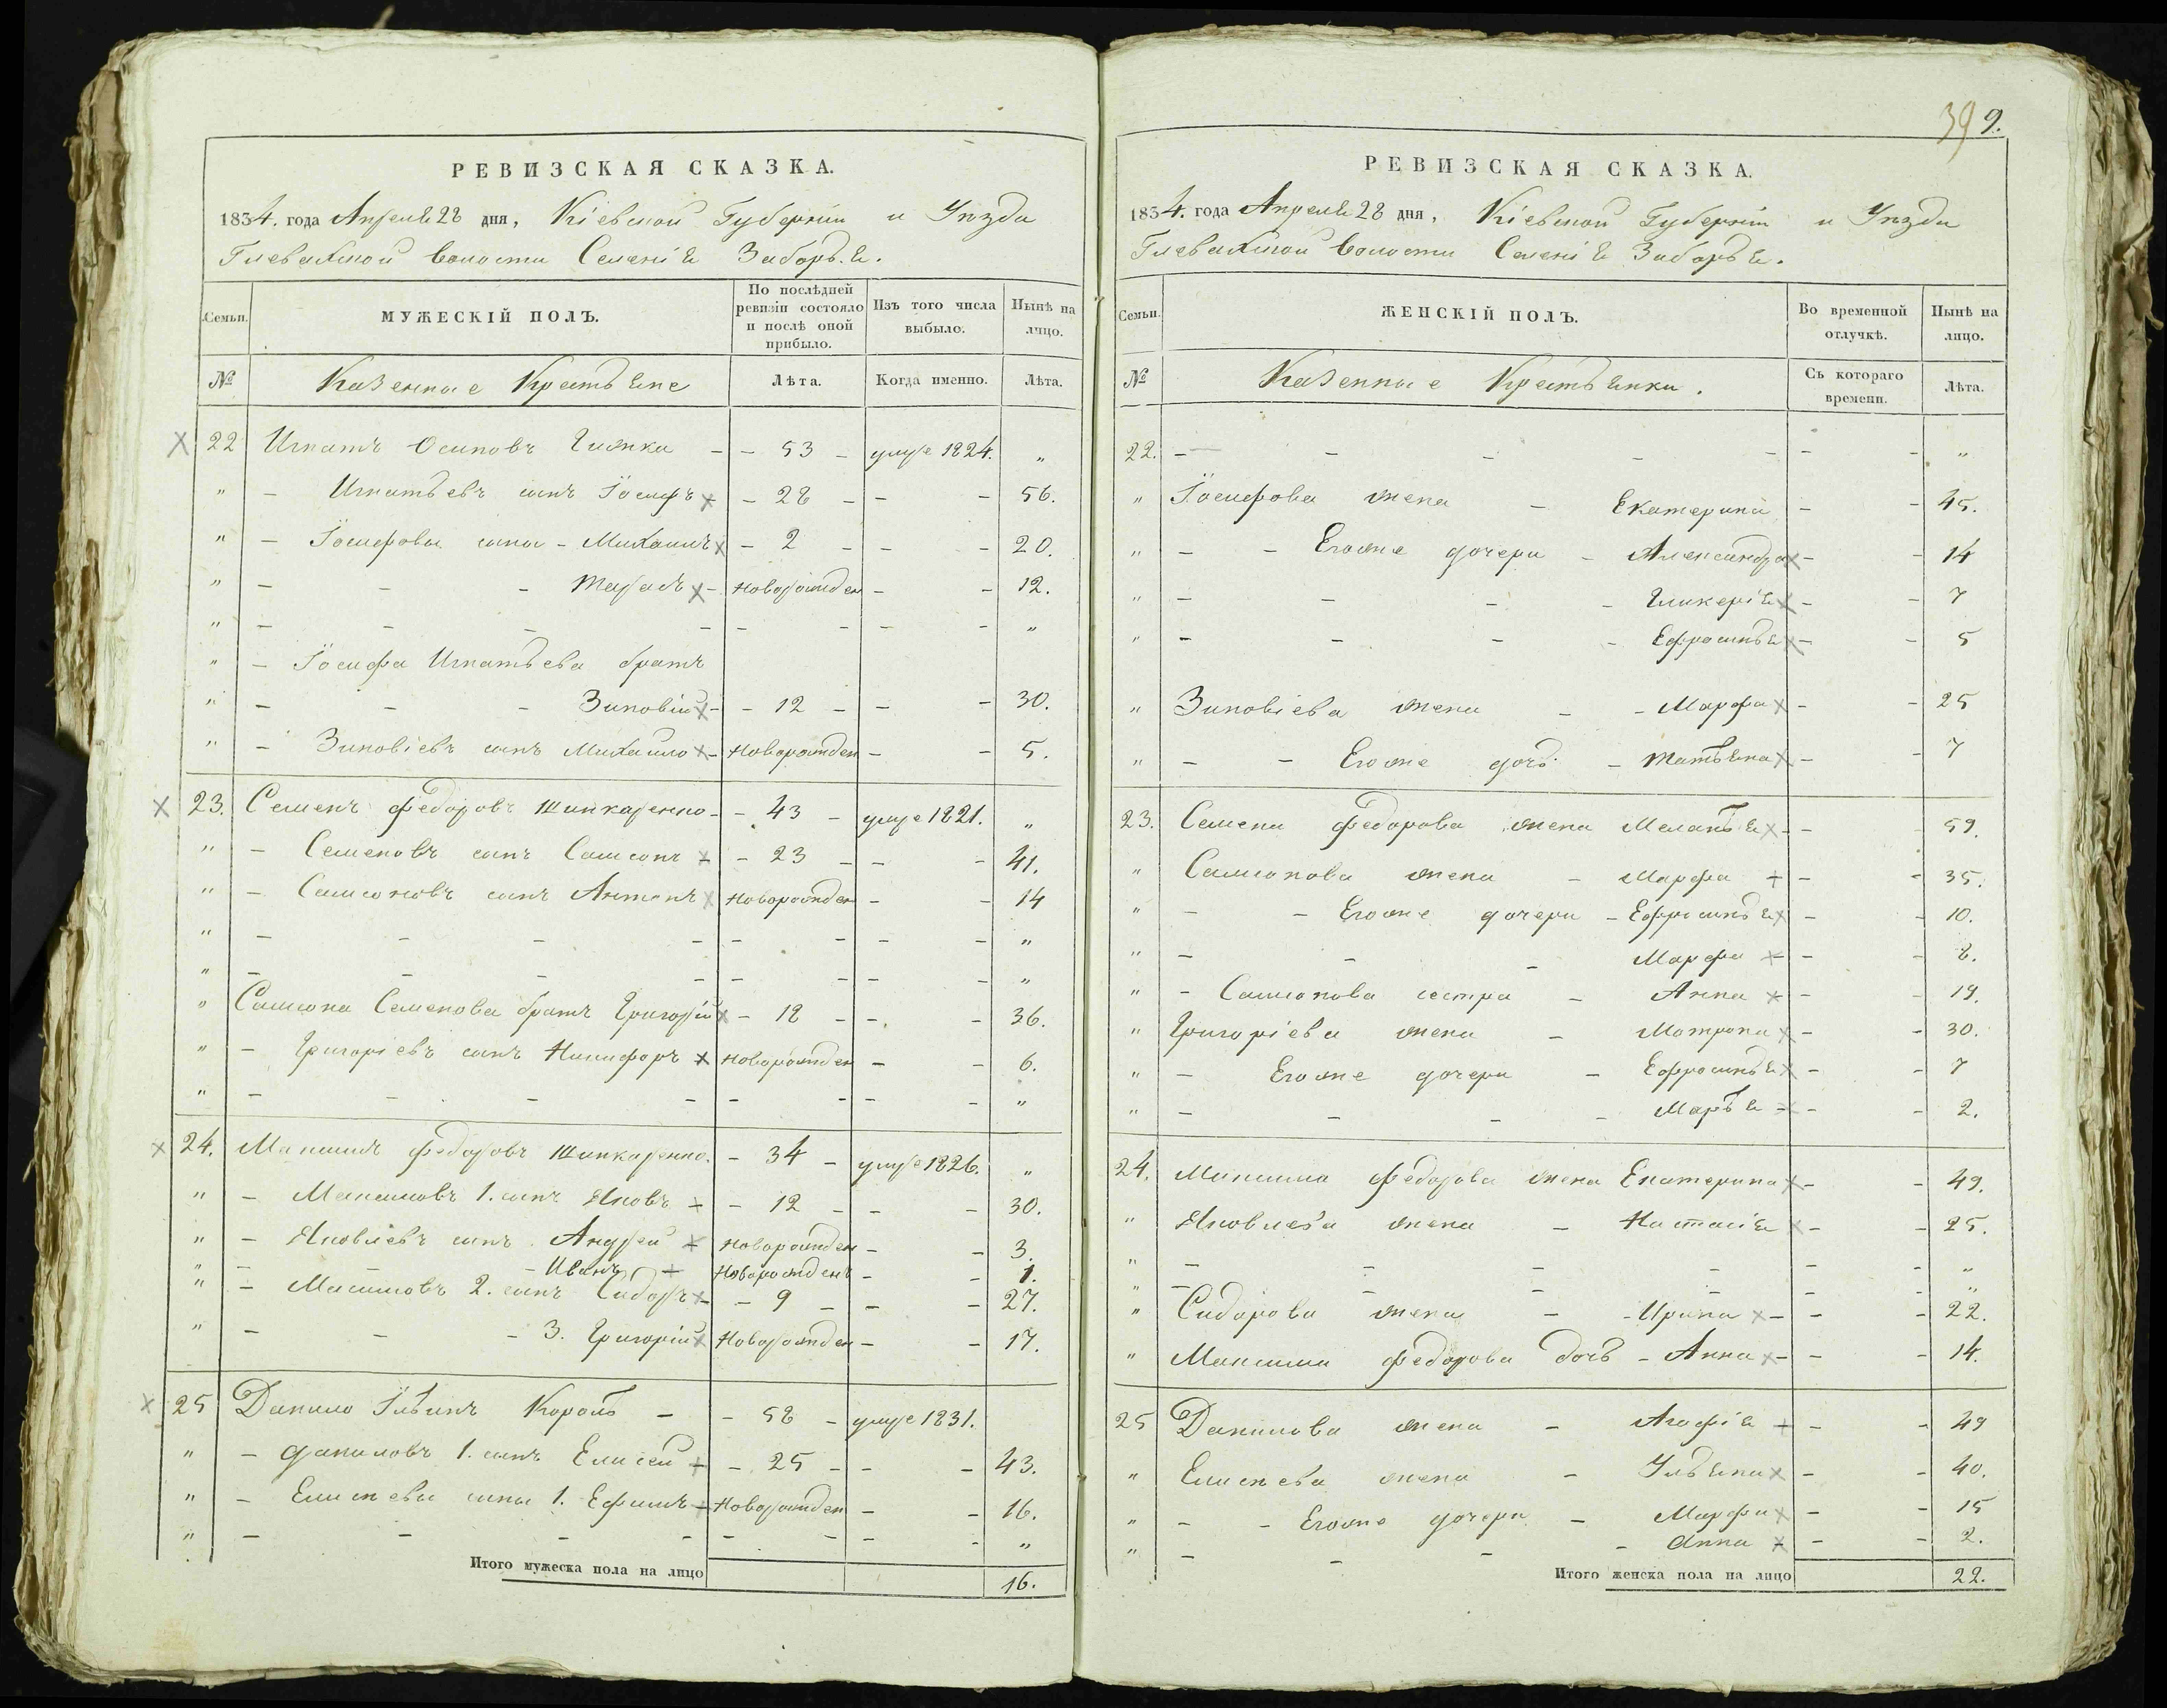 РЕВИЗСКАЯ СКАЗКА.
1834. года Апреля 28 дня, Кіевской Губерніи и Уѣзда
Глевахской волости Селенія Заборья.
Семьи. МУЖЕСКІЙ ПОЛЪ. По послѣдней ревизіи состояло и послѣ оной прибыло. Изъ того числа выбыло. Нынѣ на лицо.
№ Казенные Крестьяне Лѣта. Когда именно. Лѣта.
22 Игнатъ Осиповъ - - 53 - умре 1824. "
" - Игнатьевъ сынъ Іосифъ - 28 - - - 56.
" - Іосифовы сыны - Михаилъ - 2 - - - 20.
" - - - Тарасъ - новорожден - - 12.
" - - - - - - - - "
" - Іосифа Игнатьева братъ
" - - - Зиновій - - 12 - - - 30.
" - Зиновіевъ сынъ Михайло - новорожден - - 5.
23. Семенъ Федоровъ Шинкаренко - - 43 - умре 1821. "
" - Семеновъ сынъ Самсонъ - - 23 - - - 41.
" - Самсоновъ сынъ Антонъ новорожден - - 14
" - - - - - - - - "
" - - - - - - - - "
" Самсона Семенова братъ Григорій - 18 - - - 36.
" - Григоріевъ сынъ Никифоръ новорожден - - 6.
" - - - - - - - - "
24. Максимъ Федоровъ Шинкаренко. - 34 - умре 1826. "
" - Максимовъ 1. сынъ Яковъ - - 12 - - - 30.
" - Яковлевъ сынъ Андрей новорожден - - 3.
" - - - Иванъ новорожденъ - - 1.
" - Максимовъ 2. сынъ Сидоръ - - 9 - - - 27.
" - - - 3. Григорій новорожден - - 17.
25 Данило Ильинъ Король - - 58 - умре 1831.
" - Даниловъ 1. сынъ Елисей - - 25 - - - 43.
" - Елисеевы сыны 1. Ефимъ - новорожден - - 16.
" - - - - - - - - "
Итого мужеска пола на лицо 16.
39 9.
РЕВИЗСКАЯ СКАЗКА.
1834. года Апреля 28 дня, Кіевской Губерніи и Уѣзда
Глевахской волости Селенія Заборья.
Семьи. ЖЕНСКІЙ ПОЛЪ. Во временной отлучкѣ. Нынѣ на лицо.
№ Казенные Крестьянки. Съ котораго времени. Лѣта.
22. - - - - - - - "
" Іосифова жена - Екатерина - - 45.
" - - Егоже дочери - Александра - - 14
" - - - - Гликерія - - 7
" - - - - Ефросинья - - 5
" Зиновіева жена - - Марфа - - 25
" - - Егоже дочь - Татьяна - - 7
23. Семена Федорова жена Меланья - - 59.
" Самсонова жена - Марфа - - 35.
" - - Егоже дочери - Ефросинья - 10.
" - - - Марфа - - 8.
" - Самсонова сестра - Анна - - 19.
" Григоріева жена - Матрона - - 30.
" - Егоже дочери - Ефросинья - - 7
" - - - - Марья - - - 2.
24. Максима Федорова жена Екатерина - - 49.
" Яковлева жена - Настасія - - 25.
" - - - - - - "
" - - - - - - "
" Сидорова жена - - Ирина - - - 22.
" Максима Федорова дочь - Анна - - - 14.
25 Данилова жена - Агафія - - 49
" Елисеева жена - Ульяна - - 40.
" - - Егоже дочери - Марфа - - 15
" - - - - Анна - - 2.
Итого женска пола на лицо 22.